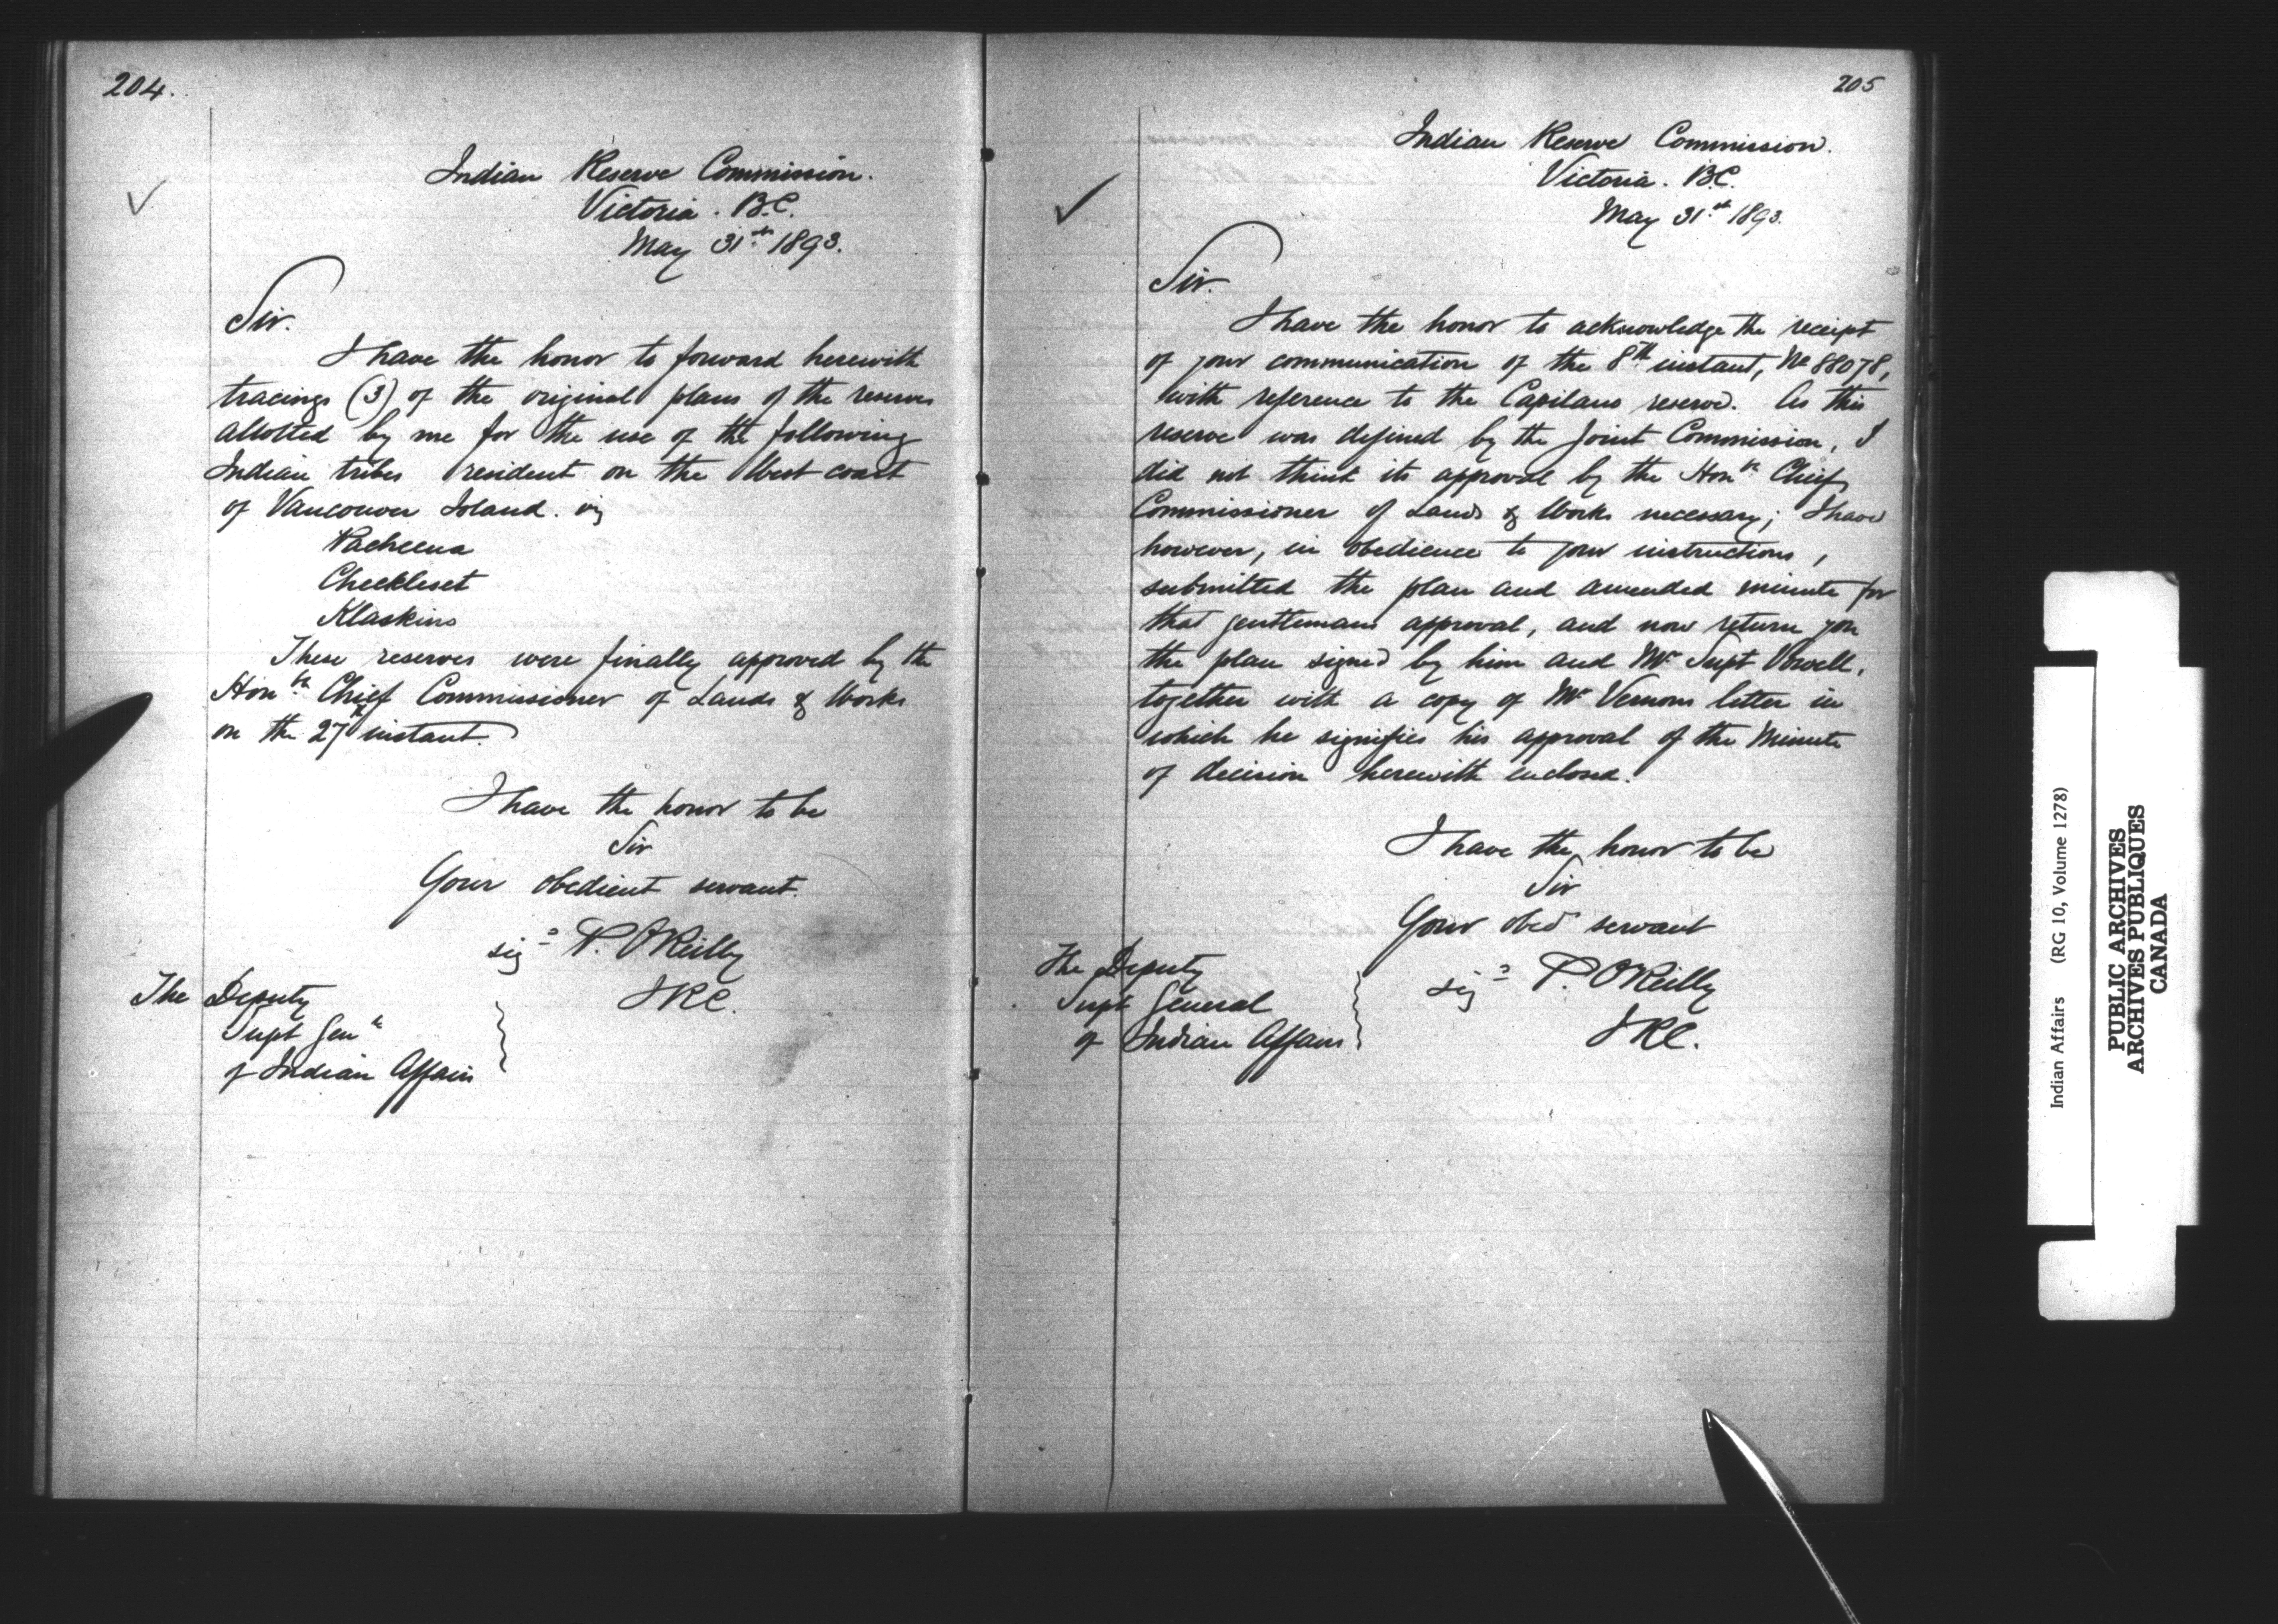 204.
Indian Reserve Commission.
Victoria. B.C.
May 31st 1893.
Sir.
I have the honor to forward herewith
tracings (3) of the original plans of the reserves
allotted by me for the use of the following
Indian tribes resident on the West coast
of Vancouver Island. viz
Pacheena
Checkleset
Klaskino
These reserves were finally approved by the
Honble Chief Commissioner of Lands & Works
on the 27th instant.
I have the honor to be
Sir
Your obedient servant.
sigd P. O'Reilly
I R C.
The Deputy
Supt Genl
of Indian Affairs
205
Indian Reserve Commission.
Victoria. B.C.
May 31st 1893.
Sir.
I have the honor to acknowledge the receipt
of your communication of the 8th instant, No 88078,
with reference to the Capilano reserve. As this
reserve was defined by the Joint Commission, I
did not think its approval by the Honble Chief
Commissioner of Lands & Works necessary; I have
however, in obedience to your instructions,
submitted the plan and amended minute for
that gentlemans approval, and now return you
the plan signed by him and Mr Supt Vowell,
together with a copy of Mr Vernons letter in
which he signifies his approval of the Minute
of decision herewith enclosed.
I have the honor to be
Sir
Your obed servant
sigd P. O'Reilly
I R C.
The Deputy
Supt General
of Indian Affairs
Indian Affairs (RG 10, Volume 1278)
PUBLIC ARCHIVES
ARCHIVES PUBLIQUES
CANADA